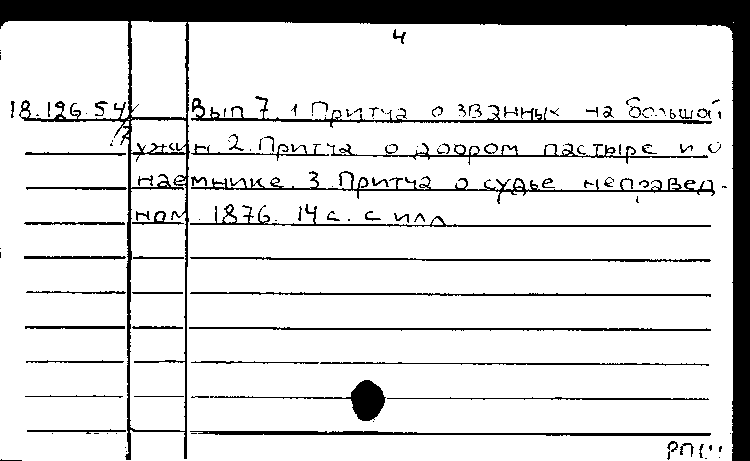 4
18.126.54/ Вып 7. 1 Притча о званных на большой
/7 ужин 2. Притча о добром пастыре и о
наемнике. 3. Притча о судье неправед-
ном. 1876. 14 с. с илл